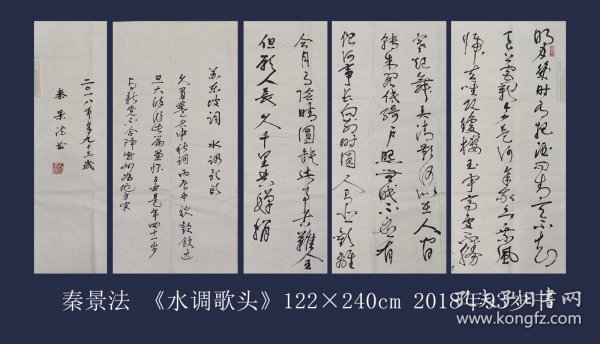 明月几时有把酒问青天不知
天上宫阙今夕是何年我欲乘风
归去唯恐琼楼玉宇高处不胜
寒起舞弄清影何似在人间
转朱阁低绮户照无眠不应有
恨何事长向别时圆人有悲欢离
合月有阴晴圆缺此事古難全
但願人長久千里共嬋娟
苏东坡詞 水调歌头
丙辰中秋歡飲达
旦大醉
二〇一八年年九十三歲
秦景法书
秦景法 《水调歌头》122×240cm 2018年93岁书
孔夫子旧书网
www.kongfz.com